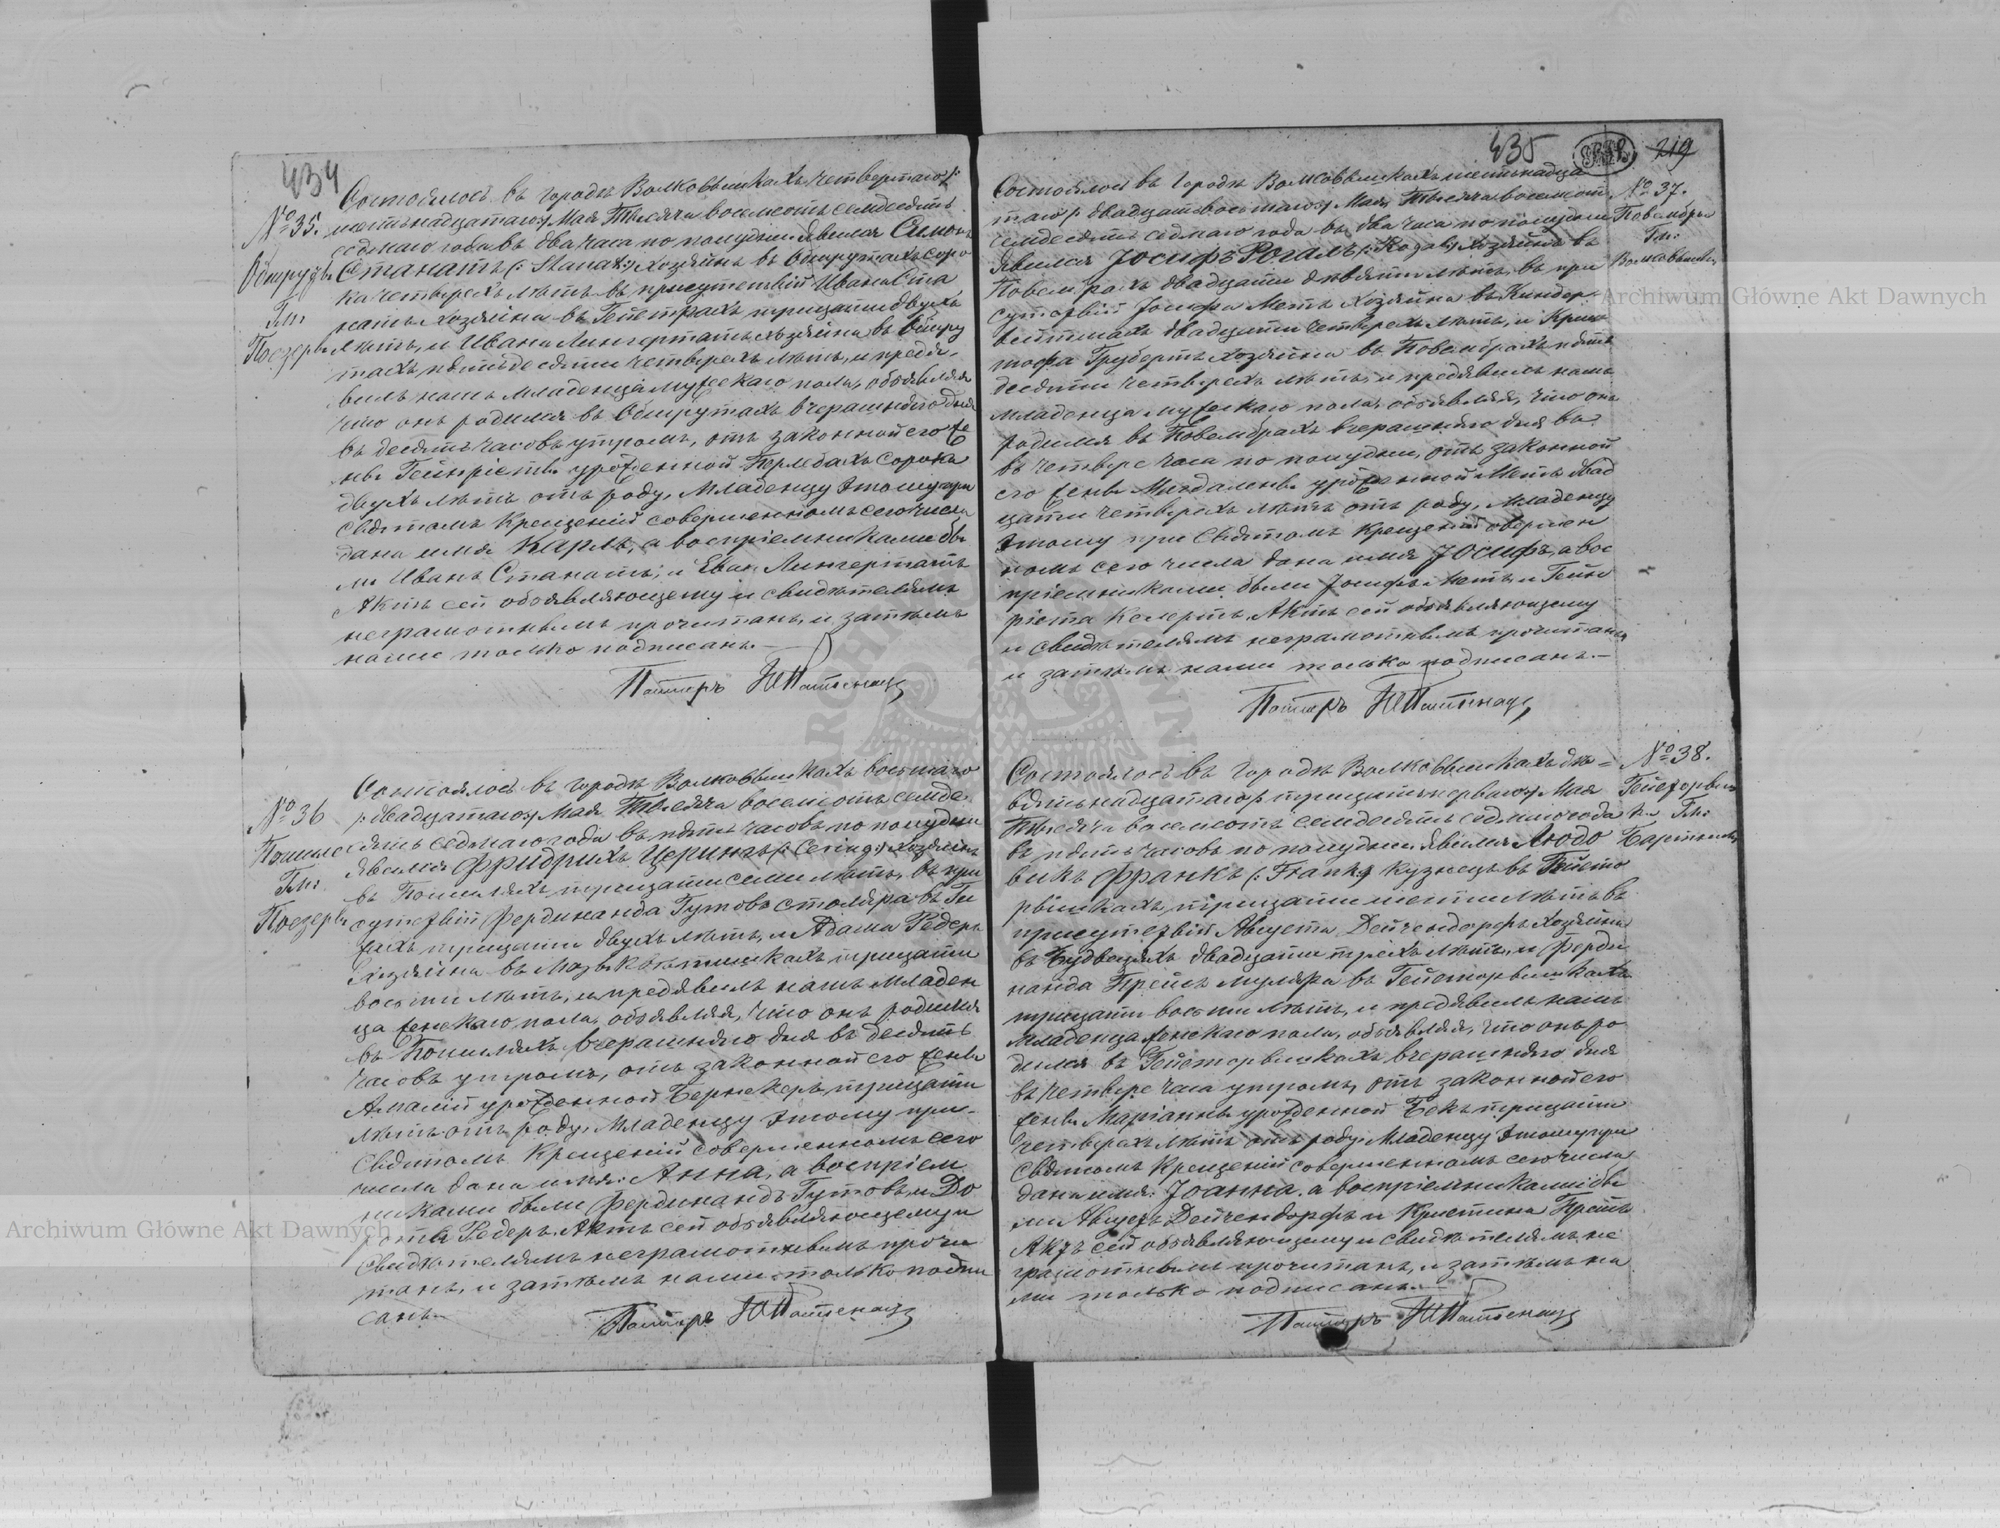 434
№ 35.
Обшруты
Гм:
Поезеры
Состоялось въ городѣ Волковышкахъ четвертаго /:
шестьнадцатаго:/ Мая тысяча восемьсотъ семдесятъ
седмаго года въ два часа по полудни. Явился Симонъ
Станатъ (: Stanat :) хозяинъ въ Обшрутахъ соро
ка четырехъ лѣтъ въ присутствіи Ивана Ста
натъ хозяина въ тридцати двухъ
лѣтъ, и Ивана Лингертатъ хозяина въ Обшру
тахъ пятьдесяти четырехъ лѣтъ, и предъя-
вилъ намъ младенца мужескаго пола, объявляя
что онъ родился въ Обшрутахъ вчерашняго дня
въ десять часовъ утромъ, отъ законной его же
ны Гейнріеты урожденной сорока
двухъ лѣтъ отъ роду, Младенцу этому при
Святомъ Крещеніи совершенномъ сего числа
дано имя Карлъ, а воспріемниками бы
ли Иванъ Станатъ, и Ева Лингертатъ
Актъ сей объявляющему и свидѣтелямъ
неграмотнымъ прочитанъ, и затѣмъ
нами только подписанъ.—
Пасторъ
№ 36
Гм:
Поезеры
Состоялось въ городѣ Волковышкахъ восьмаго
/: двадцатаго:/ Мая Тысяча восемьсотъ семде-
сятъ седмаго года въ пять часовъ по полудни
явился Фридрихъ Церингъ хозяинъ
въ тридцати семи лѣтъ, въ при
сутствіи Фердинанда Гутовъ столяра въ
тридцати двухъ лѣтъ, и Адама Редеръ
хозяина въ тридцати
восьми лѣтъ, и предъявилъ намъ младен
ца женскаго пола, объявляя, что онъ родился
въ вчерашняго дня въ десять
часовъ утромъ, отъ законной его жены
Амаліи урожденной Бернекеръ, тридцати
лѣтъ отъ роду, Младенцу этому при-
Святомъ Крещеніи совершенномъ сего
числа дано имя: Анна, а воспріем
никами были Фердинандъ Гутовъ, и До
ротея Редеръ. Актъ сей объявляющему и
свидѣтелямъ неграмотнымъ прочи
танъ, и затѣмъ нами только подпи
санъ.—
Пасторъ
435
219
№ 37.
Повембры
Гм:
Состоялось въ городѣ Волковышкахъ шестьнадца
таго /: двадцатьвосьмаго:/ Мая Тысяча восемьсотъ
семдесятъ седмаго года въ два часа по полудни
явился Іосифъ Рогалъ хозяинъ въ
Повембрахъ двадцати девяти лѣтъ, въ при
сутствіи Іосифа Метъ хозяина въ
двадцати четырехъ лѣтъ, и Крис
тофа Грубертъ хозяина въ Повембрахъ пять
десяти четырехъ лѣтъ, и предъявилъ намъ
младенца мужескаго пола, объявляя, что онъ
родился въ Повембрахъ вчерашняго дня въ
въ четыре часа по полудни, отъ законной
его жены Магдалены урожденной Метъ двад
цати четырехъ лѣтъ отъ роду, Младенцу
этому при Святомъ Крещеніи совершен
номъ сего числа дано имя Іосифъ, а вос
пріемниками были Іосифъ Метъ и Гейн
ріета Актъ сей объявляющему
и свидѣтелямъ неграмотнымъ прочитанъ
и затѣмъ нами только подписанъ.—
Пасторъ
№ 38.
Гм:
Состоялось въ городѣ Волковышкахъ де-
вятьнадцатаго /: тридцатьперваго:/ Мая
Тысяча восемьсотъ семдесятъ седмаго года
въ пять часовъ по полудни. Явился Людо
викъ Франкъ (: Frank :) кузнецъ въ
тридцати шести лѣтъ въ
присутствіи Августа Дейчендорфъ хозяина
въ двадцати трехъ лѣтъ, и Ферди
нанда муляра въ
тридцати восьми лѣтъ, и предъявилъ намъ
младенца женскаго пола, объявляя, что онъ ро
дился въ вчерашняго дня
въ четыре часа утромъ, отъ законной его
жены Маріанны урожденной Бекъ тридцати
четырехъ лѣтъ отъ роду. Младенцу этому при
Святомъ Крещеніи совершенномъ сего числа
дано имя: Іоанна. а воспріемниками бы
ли Августъ Дейчендорфъ и Кристина
Актъ сей объявляющему и свидѣтелямъ не
грамотнымъ прочитанъ, и затѣмъ на
ми только подписанъ.—
Пасторъ
Archiwum Główne Akt Dawnych
Archiwum Główne Akt Dawnych